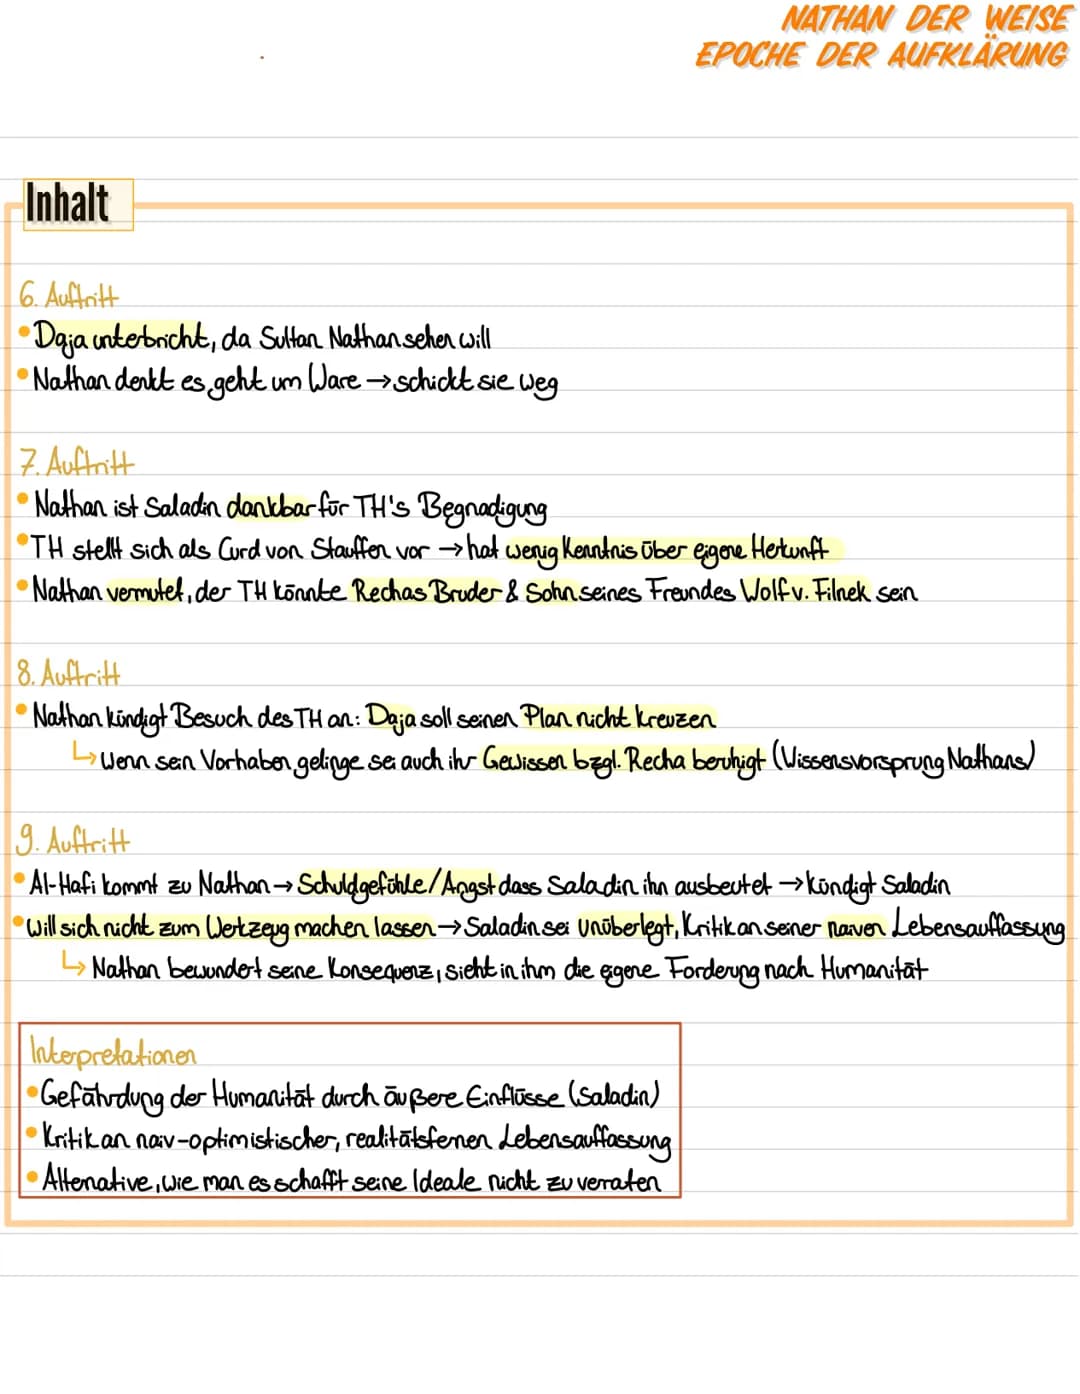 NATHAN DER WEISE
EPOCHE DER AUFKLÄRUNG
Inhalt
6. Auftritt
• Daja unterbricht, da Sultan Nathan sehen will
• Nathan denkt es geht um Ware → schickt sie weg
7. Auftritt
• Nathan ist Saladin dankbar für TH's Begnadigung
• TH stellt sich als Curd von Stauffen vor → hat wenig Kenntnis über eigene Herkunft
• Nathan vermutet, der TH könnte Rechas Bruder & Sohn seines Freundes Wolf v. Filnek sein
8. Auftritt
• Nathan kündigt Besuch des TH an: Daja soll seinen Plan nicht kreuzen
↳ Wenn sein Vorhaben gelinge sei auch ihr Gewissen bzgl. Recha beruhigt (Wissensvorsprung Nathans)
9. Auftritt
• Al-Hafi kommt zu Nathan → Schuldgefühle/Angst dass Saladin ihn ausbeutet → kündigt Saladin
• Will sich nicht zum Werkzeug machen lassen → Saladin sei unüberlegt, Kritik an seiner naiven Lebensauffassung
↳ Nathan bewundert seine Konsequenz, sieht in ihm die eigene Forderung nach Humanität
Interpretationen
• Gefährdung der Humanität durch äußere Einflüsse (Saladin)
• Kritik an naiv-optimistischer, realitätsfernen Lebensauffassung
• Alternative, wie man es schafft seine Ideale nicht zu verraten